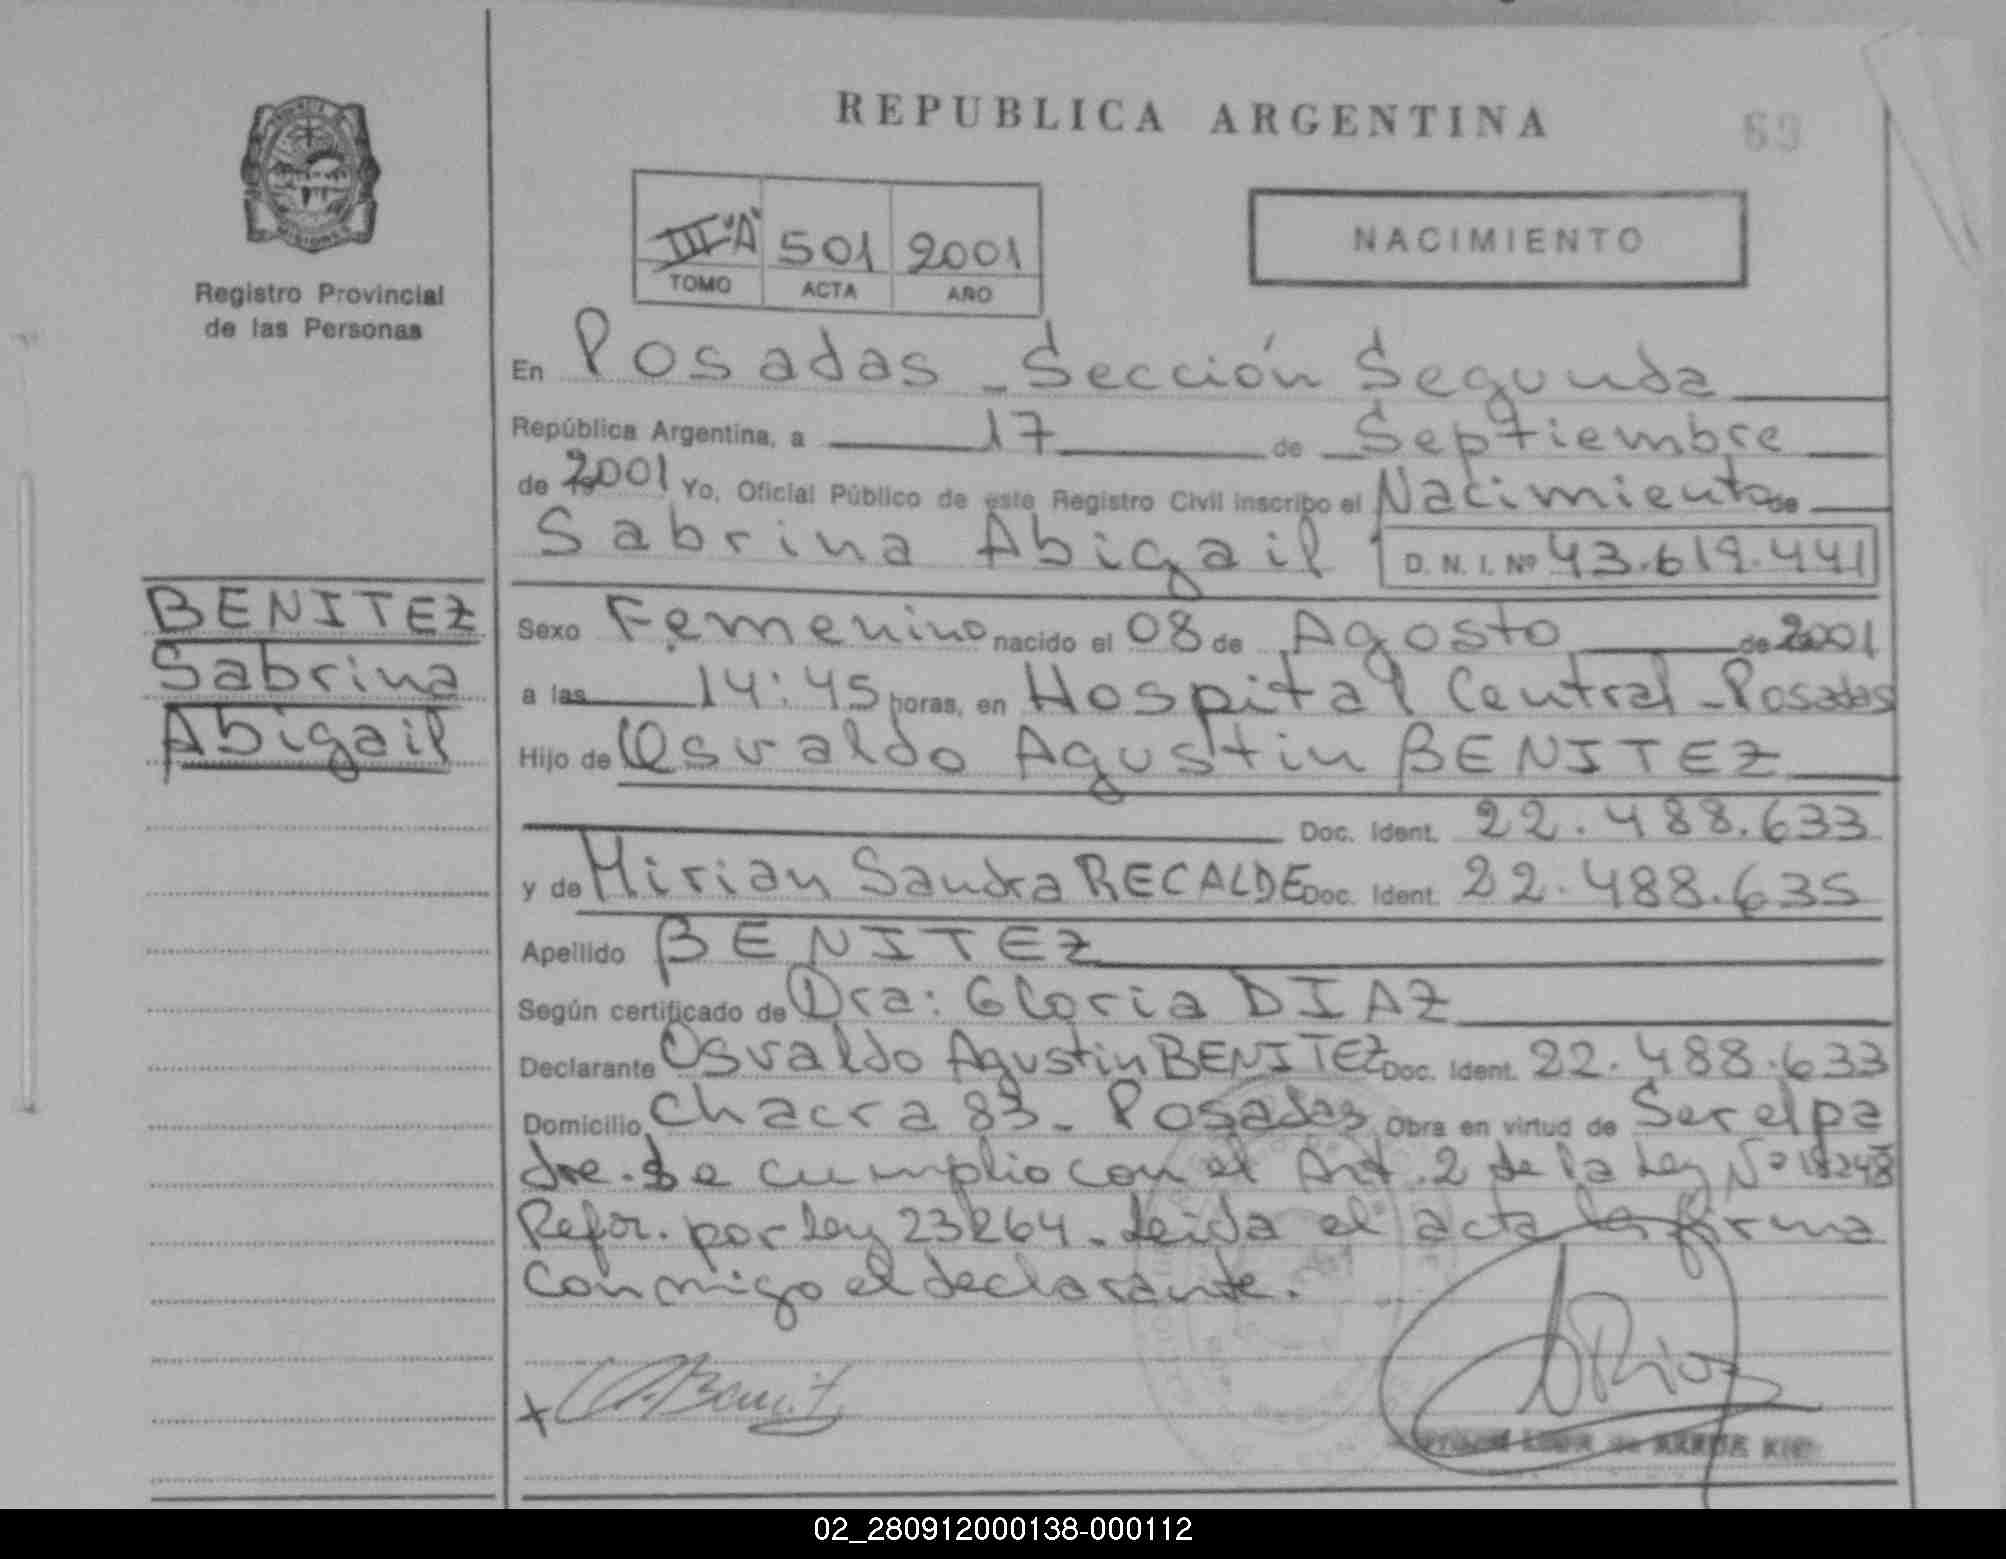 REPUBLICA ARGENTINA
69
PROVINCIA
MISIONES
Registro Provincial
de las Personas
III "A" 501 2001
TOMO ACTA AÑO
NACIMIENTO
En Posadas - Sección Segunda
República Argentina, a 17 de Septiembre
de 2001 Yo, Oficial Público de este Registro Civil inscribo el Nacimiento de
Sabrina Abigail D. N. I. Nº 43.619.441
BENITEZ
Sabrina
Abigail
Sexo Femenino nacido el 08 de Agosto de 2001
a las 14:45 horas, en Hospital Central - Posadas
Hijo de Osvaldo Agustin BENITEZ
Doc. Ident. 22.488.633
y de Mirian Sandra RECALDE Doc. Ident. 22.488.635
Apellido BENITEZ
Según certificado de Dra: Gloria DIAZ
Declarante Osvaldo Agustin BENITEZ Doc. Ident. 22.488.633
Domicilio Chacra 83 - Posadas Obra en virtud de Ser el pa
dre. Se cumplio con el Art. 2 de la Ley Nº 18248
Refor. por Ley 23264. Leida el acta la firma
conmigo el declarante.
x O.A. Benit
Rios
02_280912000138-000112